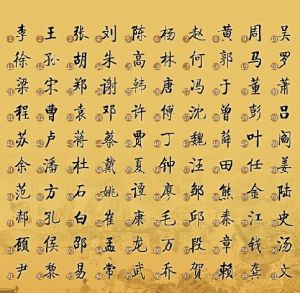 李 王 张 刘 陈 杨 赵 黄 周 吴
徐 孙 胡 朱 高 林 何 郭 马 罗
梁 宋 郑 谢 韩 唐 冯 于 董 萧
程 曹 袁 邓 许 傅 沈 曾 彭 吕
苏 卢 蒋 蔡 贾 丁 魏 薛 叶 阎
余 潘 杜 戴 夏 钟 汪 田 任 姜
范 方 石 姚 谭 廖 邹 熊 金 陆
郝 孔 白 崔 康 毛 邱 秦 江 史
顾 侯 邵 孟 龙 万 段 章 钱 汤
尹 黎 易 常 武 乔 賀 赖 龚 文